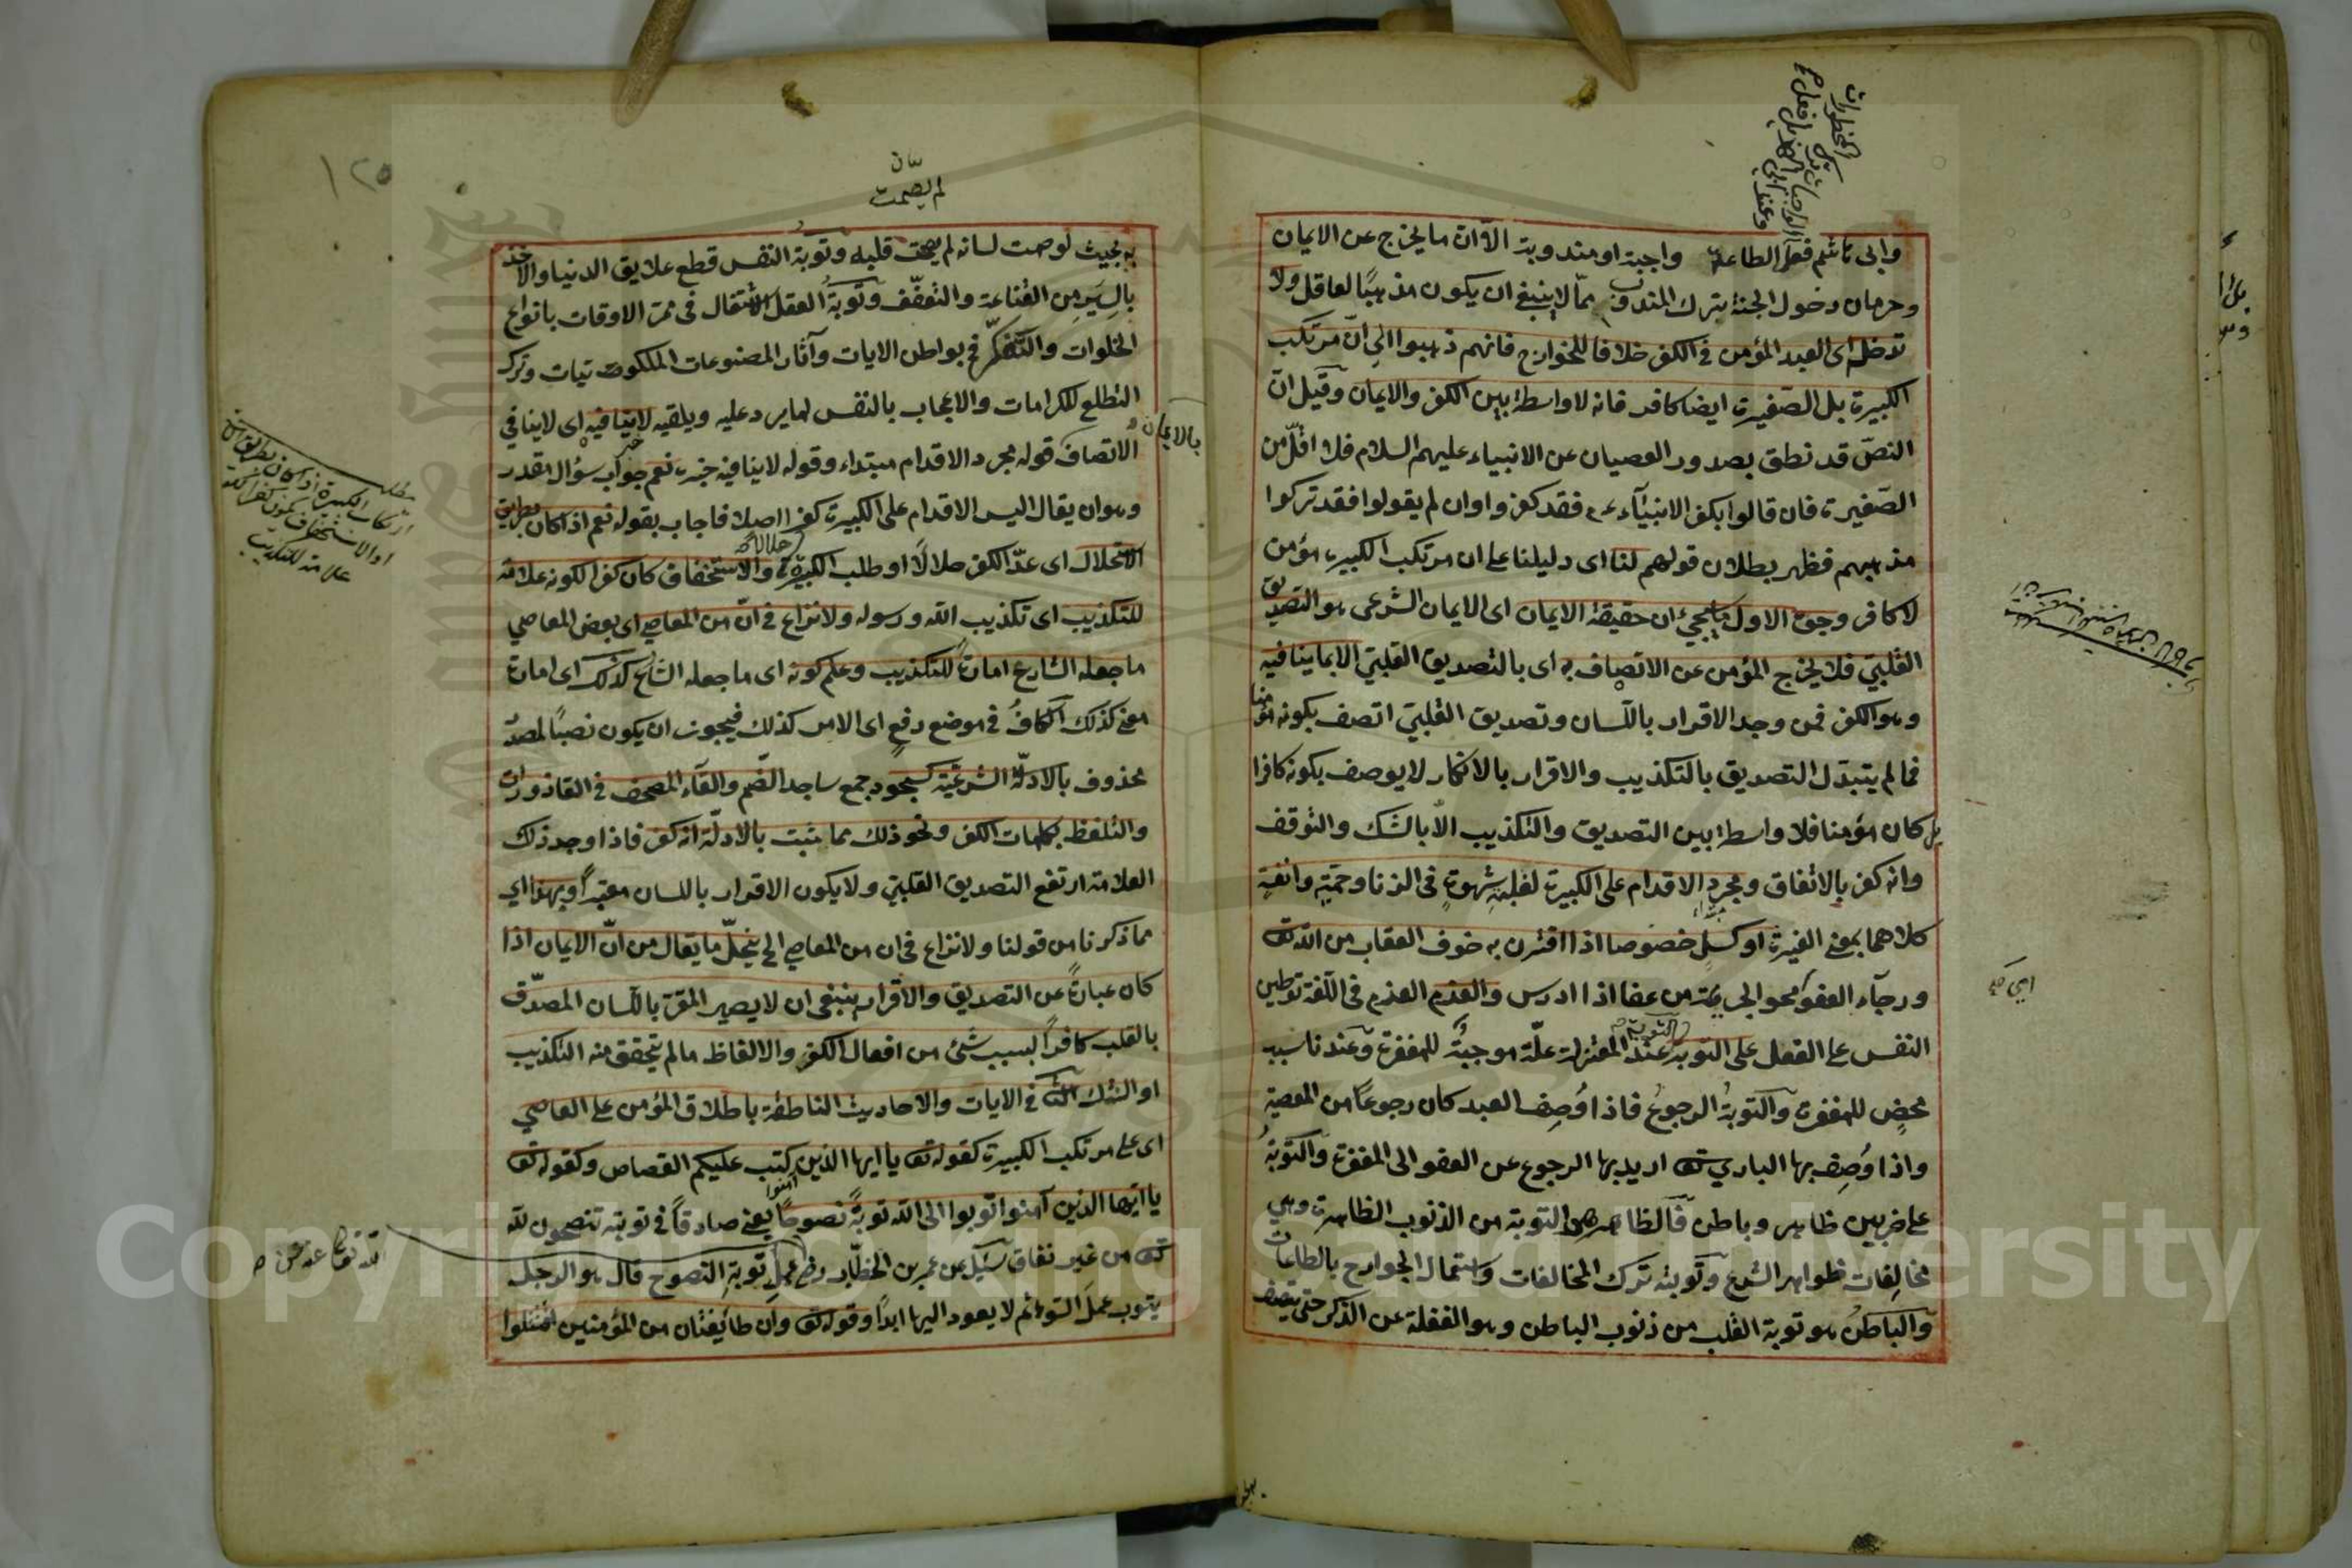 وابى هاشم فعل الطاعة واجبة او مندوبة الا ان ما يخرج عن الايمان
وحرمان دخول الجنة بترك المندوب مما لا ينبغى ان يكون مذهبا لعاقل ولا
تدخله اى العبد المؤمن فى الكفر خلافا للخوارج فانهم ذهبوا الى ان مرتكب
الكبيرة بل الصغيرة ايضا كافر فانه لا واسطة بين الكفر والايمان وقيل ان
النص قد نطق بصدور العصيان عن الانبياء عليهم السلام فلا اقل من
الصغيرة فان قالوا بكفر الانبياء عم فقد كفروا وان لم يقولوا فقد تركوا
مذهبهم فظهر بطلان قولهم لنا اى دليلنا على ان مرتكب الكبيرة مؤمن
لا كافر وجوه الاول ما يجئ ان حقيقة الايمان اى الايمان الشرعى هو التصديق
القلبى فلا يخرج المؤمن عن الاتصاف به اى بالتصديق القلبى الا بما ينافيه
وهو الكفر فمن وجد الاقرار باللسان وتصديق القلبى اتصف بكونه مؤمنا
فما لم يتبدل التصديق بالتكذيب والاقرار بالانكار لا يوصف بكونه كافرا
بل كان مؤمنا فلا واسطة بين التصديق والتكذيب الا بالشك والتوقف
وانه كفر بالاتفاق ومجرد الاقدام على الكبيرة لغلبة شهوة فى الزنا وحمية وانفة
كلاهما بمعنى الغيرة او كسل خصوصا اذا اقترن به خوف العقاب من الله تعه
ورجاء العفو محو الجريمة من عفا اذا ادرس والعزم العزم فى اللغة توطين
النفس على الفعل على التوبة التوبة عند المعتزلة علة موجبة للمغفرة وعندنا سبب
محض للمغفرة والتوبة الرجوع فاذا وصف العبد كان رجوعا من المعصية
واذا وصف بها البارى تعه اريد بها الرجوع عن العفو الى المغفرة والتوبة
على ضربين ظاهر وباطن فالظاهر هو التوبة من الذنوب الظاهرة وهى
مخالفات ظواهر الشرع وتوبته ترك المخالفات واستعمال الجوارح بالطاعات
والباطن هو توبة القلب من ذنوب الباطن وهو الغفلة عن الذكر حتى يتصف
١٢٥
لم يصمت
به بحيث لو صمت لسانه لم يصمت قلبه وتوبة النفس قطع علايق الدنيا والاخذ
باليسير من القناعة والتعفف وتوبة العقل الاشتغال فى ممر الاوقات بانواع
الخلوات والتفكر فى بواطن الايات وآثار المصنوعات الملكوتيات وترك
التطلع للكرامات والاعجاب بالنفس لما يرد عليه ويلقيه لا ينافيه اى لا ينافى
الاتصاف بالايمان قوله مجرد الاقدام مبتداء وقوله لا ينافيه خبره نعم جواب سؤال مقدر
وهو ان يقال اليس الاقدام على الكبيرة كفرا اصلا فاجاب بقوله نعم اذا كان بطريق
الاستحلال اى عدّ الكفر حلالا او طلب الكبيرة والاستخفاف كان كفرا لكونه علامة
للتكذيب اى تكذيب الله ورسوله ولا نزاع فى ان من المعاصى اى بعض المعاصى
ما جعله الشارع امارة للتكذيب وعلم كونه اى ما جعله الشارع كذلك اى امارة
معنى كذلك الكاف فى موضع رفع اى الامر كذلك فيجوز ان يكون نصبا لمصدر
محذوف بالادلة الشرعية كسجود جمع ساجد الصنم والقاء المصحف فى القاذورات
والتلفظ بكلمات الكفر ونحو ذلك مما يثبت بالادلة انه كفر فاذا وجد ذلك
العلامة ارتفع التصديق القلبى ولا يكون الاقرار باللسان معتبرا وبهذا اى
مما ذكرنا من قولنا ولا نزاع فى ان من المعاصى الى ينحل ما يقال من ان الايمان اذا
كان عبارة عن التصديق والاقرار ينبغى ان لا يصير المقر باللسان المصدق
بالقلب كافرا بسبب شئ من افعال الكفر والالفاظ ما لم يتحقق منه التكذيب
او الشك الثا فى الايات والاحاديث الناطقة باطلاق المؤمن على العاصى
اى على مرتكب الكبيرة كقوله تعه يا ايها الذين آمنوا كتب عليكم القصاص وكقوله تعه
يا ايها الذين آمنوا توبوا الى الله توبة نصوحا يعنى صادقا فى توبته تنصحون لله
تعه من غير نفاق سئيل عن عمر بن الخطاب رضى عمل توبة النصوح قال هو الرجل
يتوب عمل السوء ثم لا يعود اليها ابدا وقوله تعه وان طائفتان من المؤمنين اقتتلوا
مطلب
ارتكاب الكبيرة اذا كان بطريق
او الاستخفاف يكون كفرا لكونه
علامة للتكذيب